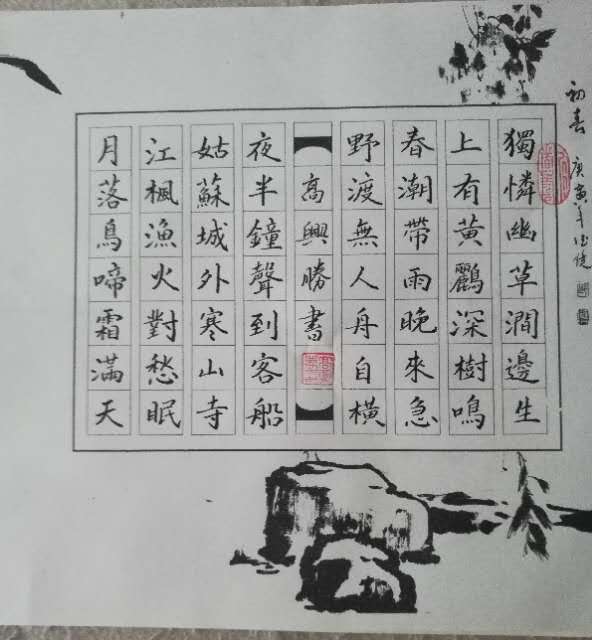 初春
庚寅年
獨憐幽草澗邊生
上有黃鸝深樹鳴
春潮帶雨晚來急
野渡無人舟自橫
高興勝書
月落鳥啼霜滿天
江楓漁火對愁眠
姑蘇城外寒山寺
夜半鐘聲到客船